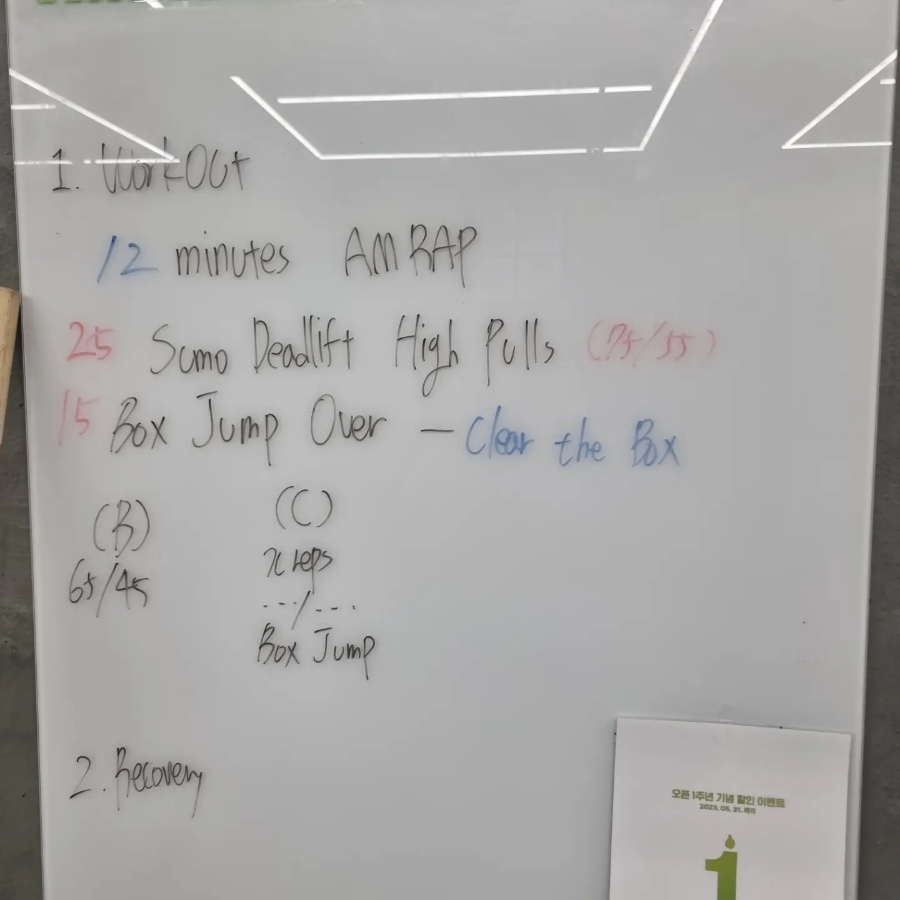 1. WorkOut
12 minutes AMRAP
25 Sumo Deadlift High Pulls (75/55)
15 Box Jump Over - Clear the Box
(B)
65/45
(C)
x reps
---/---
Box Jump
2. Recovery
오픈 1주년 기념 할인 이벤트
2023. 05. 31. 까지
1